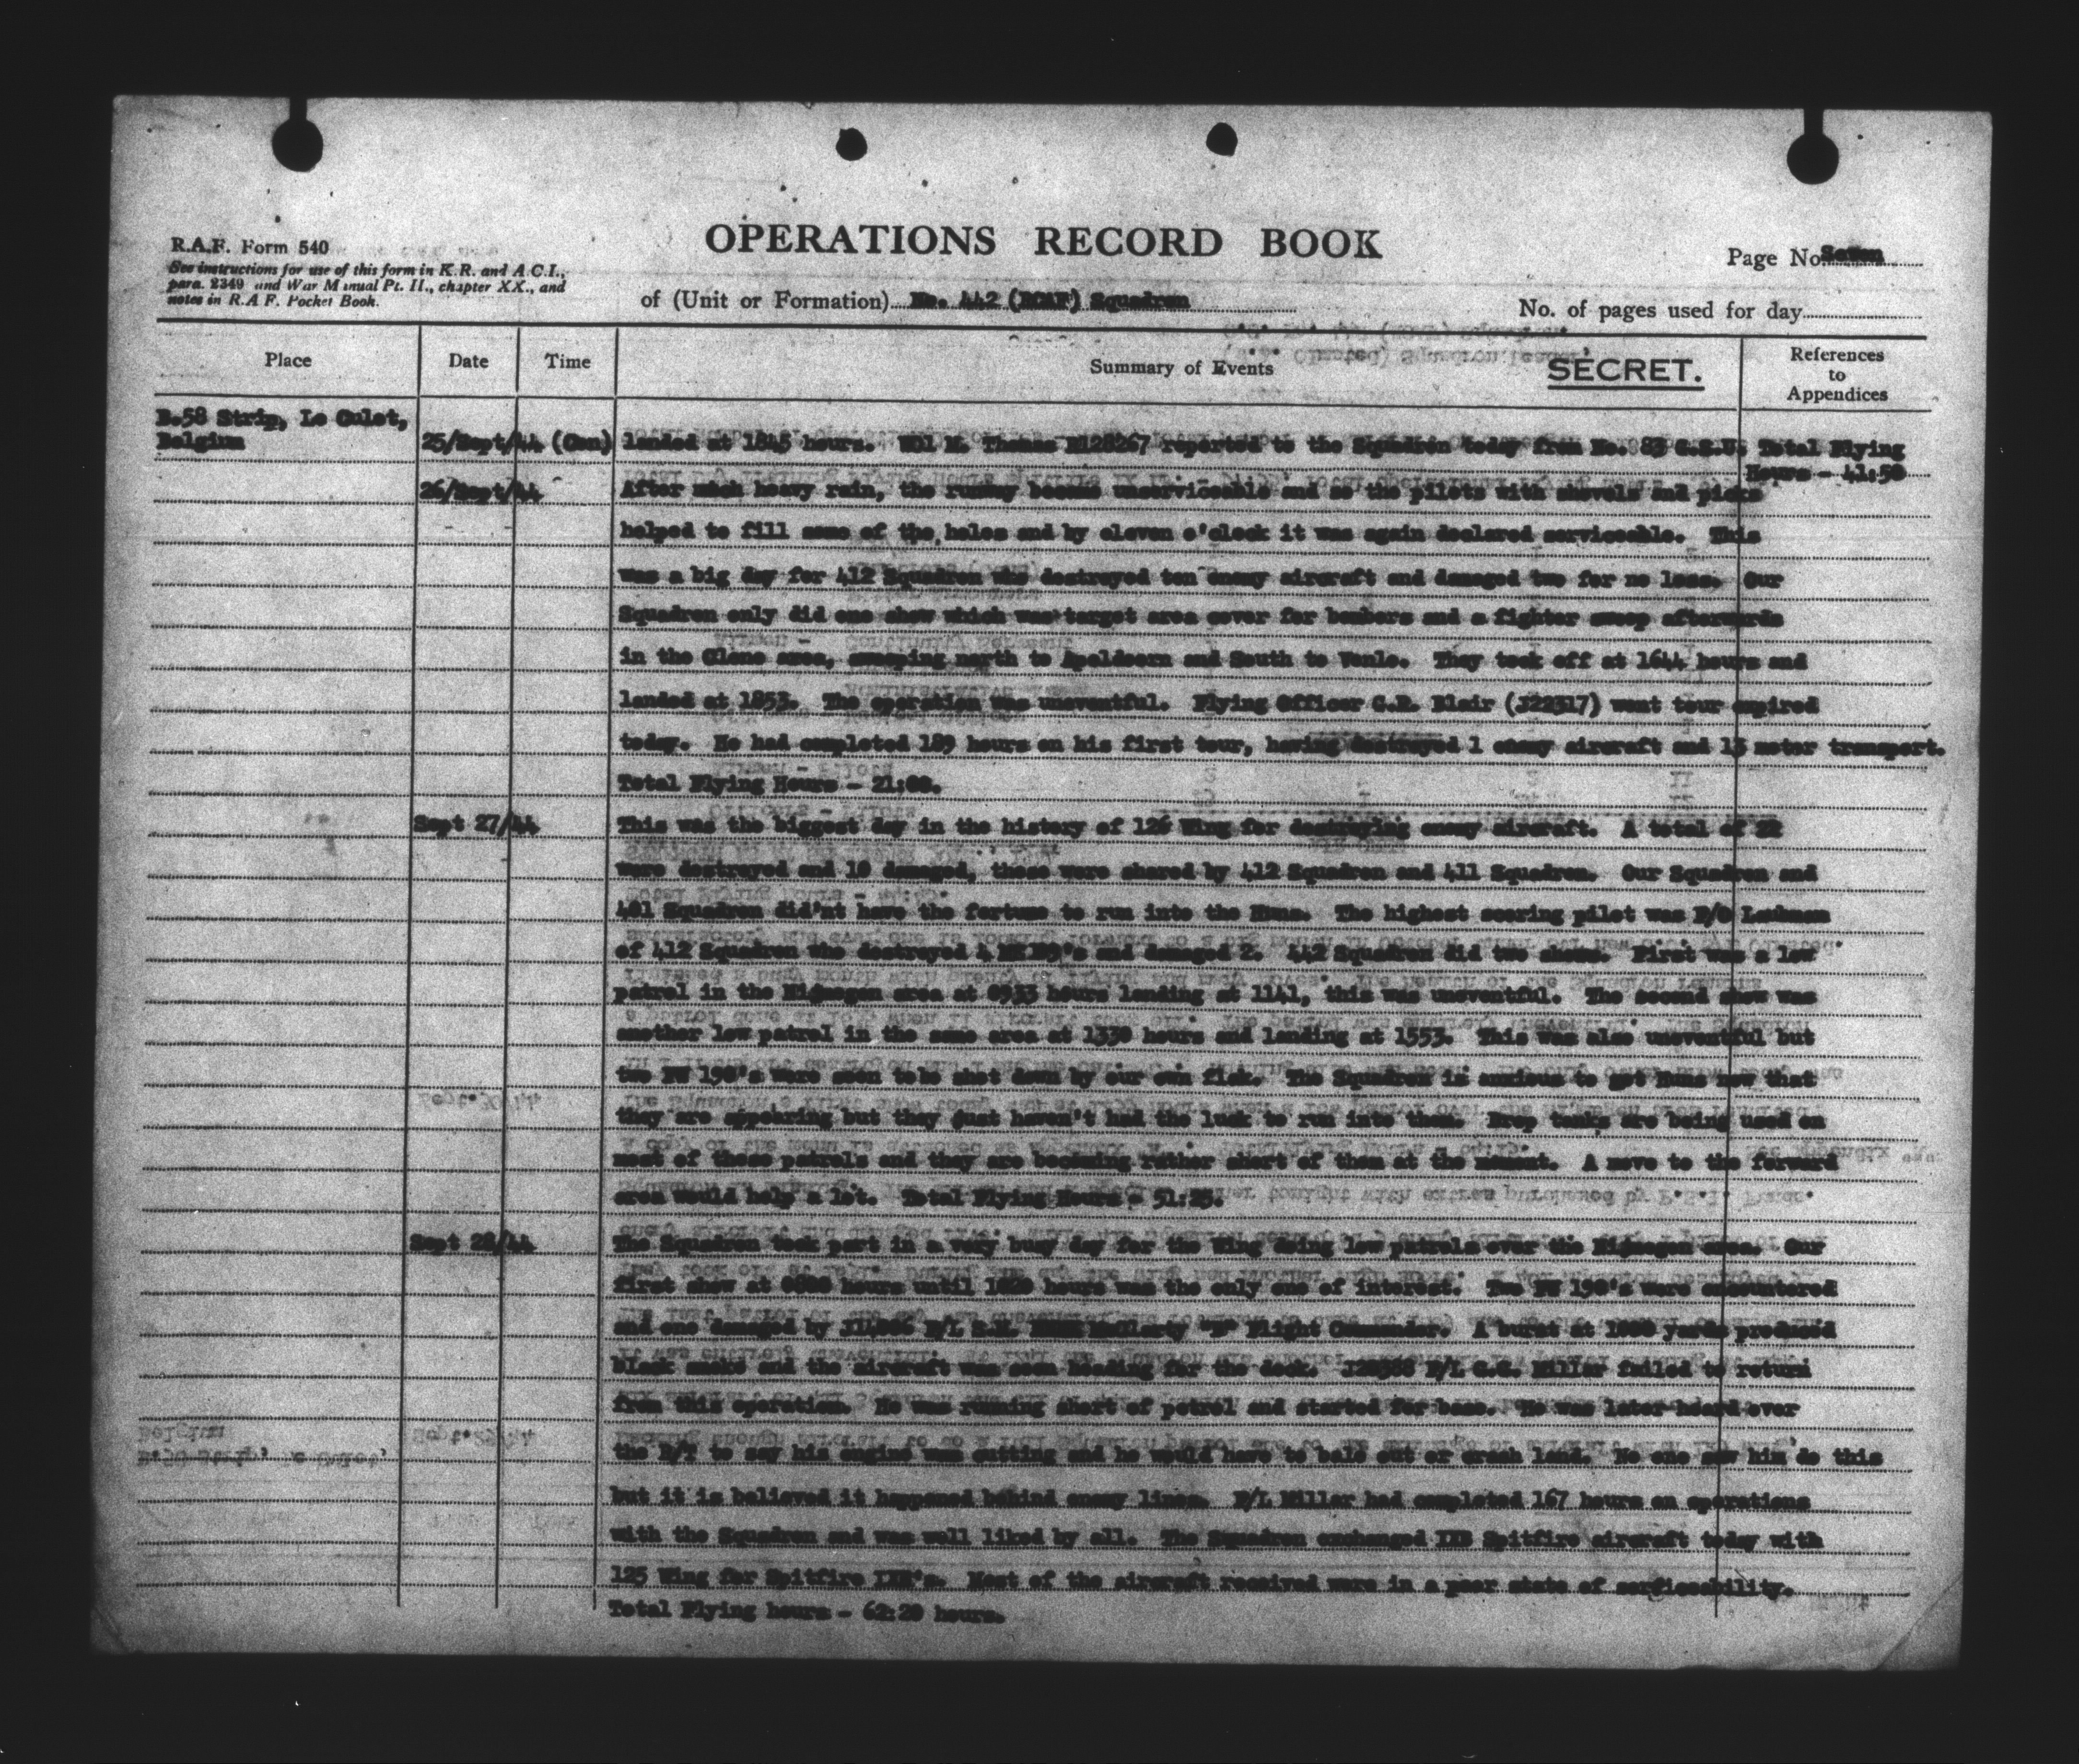 R.A.F. Form 540
See instructions for use of this form in K.R. and A.C.I.,
para. 2349 and War Manual Pt. II., chapter XX., and
notes in R.A.F. Pocket Book.
OPERATIONS RECORD BOOK
Page No. Seven
of (Unit or Formation) No. 442 (RCAF) Squadron
No. of pages used for day
Place
Date
Time
Summary of Events
SECRET.
References
to
Appendices
B.58 Strip, Le Culot,
Belgium
25/Sept/44 (Con) landed at 1845 hours. WO1 M. Thomas R128267 reported to the Squadron today from No. 83 G.S.U. Total Flying
Hours - 41:50
26/Sept/44 After much heavy rain, the runway became unserviceable and so the pilots with shovels and picks
helped to fill some of the holes and by eleven o'clock it was again declared serviceable. This
was a big day for 412 Squadron who destroyed ten enemy aircraft and damaged two for no loss. Our
Squadron only did one show which was target area cover for bombers and a fighter sweep afterwards
in the area, sweeping north to Apeldoorn and South to Venlo. They took off at 1644 hours and
landed at 1853. The operation was uneventful. Flying Officer G.R. Blair (J22317) went tour expired
today. He had completed 189 hours on his first tour, having destroyed 1 enemy aircraft and 13 motor transport.
Total Flying Hours - 21:00.
Sept 27/44 This was the biggest day in the history of 126 Wing for destroying enemy aircraft. A total of 22
were destroyed and 10 damaged, these were shared by 412 Squadron and 411 Squadron. Our Squadron and
401 Squadron did'nt have the fortune to run into the Huns. The highest scoring pilot was
of 412 Squadron who destroyed 4 ME 109's and damaged 2. 442 Squadron did two shows. First was a low
patrol in the Nijmegen area at 0933 hours landing at 1141, this was uneventful. The second show was
another low patrol in the same area at 1330 hours and landing at 1553. This was also uneventful but
two FW 190's were seen to be shot down by our own flak. The Squadron is anxious to get Huns now that
they are appearing but they just haven't had the luck to run into them. Drop tanks are being used on
most of these patrols and they are becoming rather short of them at the moment. A move to the forward
area would help a lot. Total Flying Hours - 51:25.
Sept 28/44 The Squadron took part in a very busy day for the Wing doing low patrols over the Nijmegen area. Our
first show at hours until hours was the only one of interest. Two FW 190's were encountered
and one damaged by F/L "B" Flight Commander. A burst at 1000 yards produced
black smoke and the aircraft was seen heading for the deck. F/L G.G. Millar failed to return
from this operation. He was running short of petrol and started for base. He was later heard over
the R/T to say his engine was cutting and he would have to bale out or crash land. No one saw him do this
but it is believed it happened behind enemy lines. F/L Millar had completed 167 hours on operations
with the Squadron and was well liked by all. The Squadron exchanged IXB Spitfire aircraft today with
125 Wing for Spitfire Most of the aircraft received were in a poor state of serficeability.
Total Flying hours - 62:20 hours.